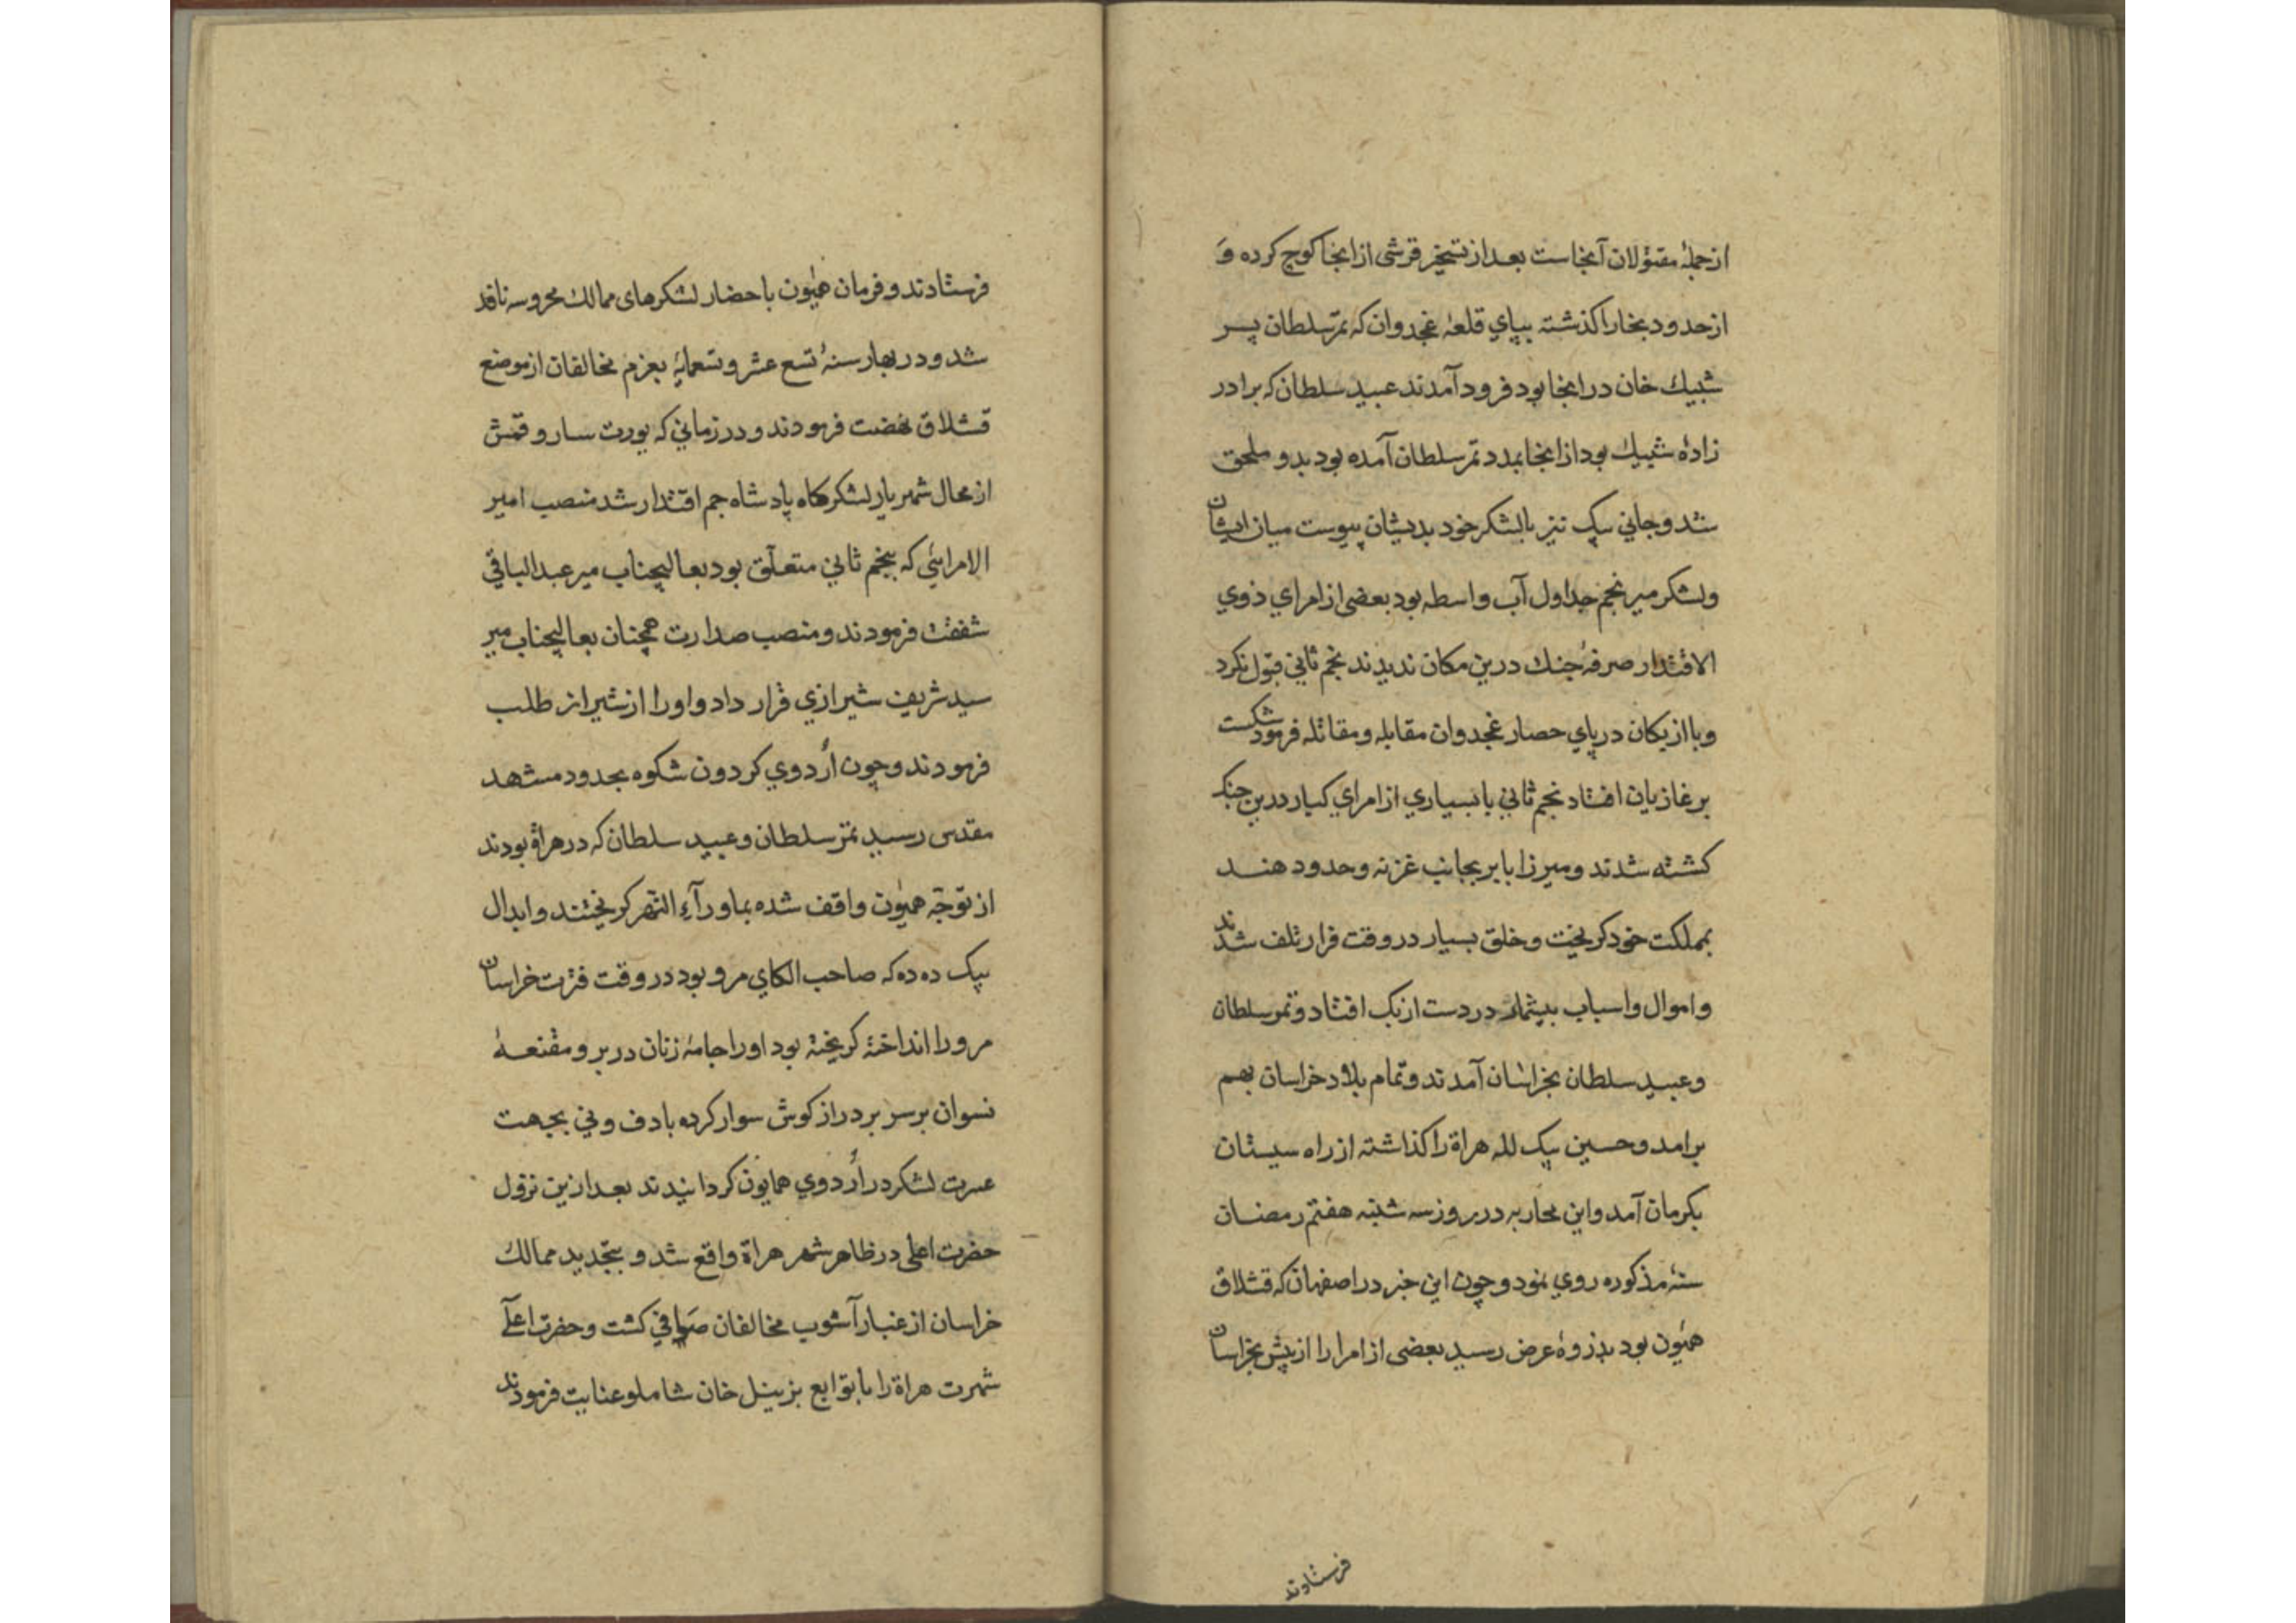 ازجملهٔ مقتولان آنجاست بعد از تسخیر قرشی از انجا کوچ کرده و
از حدود بخارا کذشته بپای قلعهٔ غجدوان که تمرسلطان پسر
شیبك خان در انجا بود فرود آمدند عبید سلطان که برادر
زادهٔ شیبك بود از انجا بمدد تمرسلطان آمده بود بدو ملحق
شد و جانی بیک نیز با لشکر خود بدیشان پیوست میان ایشان
ولشکر میر نجم جداول آب واسطه بود بعضی از امرای ذوی
الاقتدار صرفهٔ جنك درین مکان ندیدند نجم ثانی قبول نکرد
وبا ازبکان در پای حصار غجدوان مقابله ومقاتله فرمود شکست
بر غازیان افتاد نجم ثانی با بسیاری از امرای کبار درین جنك
کشته شدند ومیرزا بابر بجانب غزنه وحدود هند
بمملکت خود کریخت وخلق بسیار در وقت فرار تلف شدند
واموال واسباب بیشمار در دست ازبک افتاد وتمرسلطان
وعبید سلطان بخراسان آمدند وتمام بلاد خراسان بهم
برامد وحسین بیک لله هراة را کذاشته از راه سیستان
بکرمان آمد واین محاربه در روز سه شنبه هفتم رمضان
سنهٔ مذکوره روی نمود وچون این خبر در اصفهان که قشلاق
همیون بود بذروهٔ عرض رسید بعضی از امرا را از پیش بخراسان
فرستادند
فرستادند وفرمان همیون باحضار لشکرهای ممالك محروسه نافذ
شد ودر بهار سنهٔ تسع عشر وتسعمایهٔ بعزم مخالفان از موضع
قشلاق نهضت فرمودند ودر زمانی که یورت ساروقمش
از محال شهریار لشکرکاه پادشاه جم اقتدار شد منصب امیر
الامرایئی که بنجم ثانی متعلّق بود بعالیجناب میر عبدالباقی
شفقت فرمودند ومنصب صدارت همچنان بعالیجناب میر
سید شریف شیرازی قرار داد واورا از شیراز طلب
فرمودند وچون اُردوی کردون شکوه بحدود مشهد
مقدس رسید تمر سلطان وعبید سلطان که در هراة بودند
از توجّه همیون واقف شده بماورآء النّهر کریختند وابدال
بیک ده ده که صاحب الکای مرو بود در وقت فترت خراسان
مرو را انداختهٔ کریخته بود اورا جامهٔ زنان در بر ومقنعهٔ
نسوان بر سر بر دراز کوش سوار کرده با دف ونی بجهت
عبرت لشکر در اُردوی همایون کردانیدند بعد ازین نزول
حضرت اعلی در ظاهر شهر هراة واقع شد و بتجدید ممالك
خراسان از غبار آشوب مخالفان صافی کشت وحضرت اعلیٓ
شهرت هراة را با توابع بزینل خان شاملو عنایت فرمودند